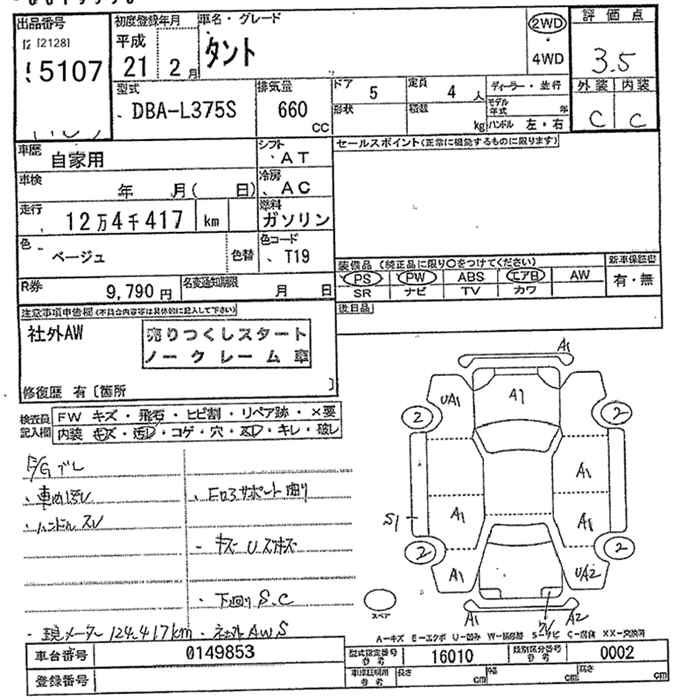 出品番号
[2128]
5107
初度登録年月
平成
21 2月
車名・グレード
タント
2WD
・
4WD
評価点
3.5
外装 内装
C C
型式
DBA-L375S
排気量
660
CC
ドア 5
定員 4人
形状
積数 kg
ディーラー・並行
モデル年式 年
ハンドル 左・右
車歴 自家用
シフト AT
車検 年 月( 日)
冷房 AC
走行 12万4千417 km
燃料 ガソリン
色 ベージュ
色替
色コード T19
R券 9,790円
名変通知期限 月 日
セールスポイント(正常に機能するものに限ります)
装備品 (純正品に限り○をつけてください)
新車保証書
PS PW ABS エアB AW
有・無
SR ナビ TV カワ
後日品
注意事項申告欄(不具合内容等は具体的に記入して下さい)
社外AW
売りつくしスタート
ノークレーム車
修復歴 有〔箇所 〕
検査員
記入欄
FW キズ・飛石・ヒビ割・リペア跡・×要
内装 キズ・汚レ・コゲ・穴・ヌレ・キレ・破レ
・ハンドルスレ
・キズ Uスキズ
・下回り S.C
・現メーター 124,417km
A1
UA1
A1
2
2
A1
S1
A1
A1
2
2
A1
UA2
A1
A2
スペア
A-キズ E-エクボ U-凹み W-補修跡 S-サビ C-腐食 XX-交換済
車台番号 0149853
型式指定番号 16010
類別区分番号 0002
登録番号
長さ cm
幅 cm
高さ cm